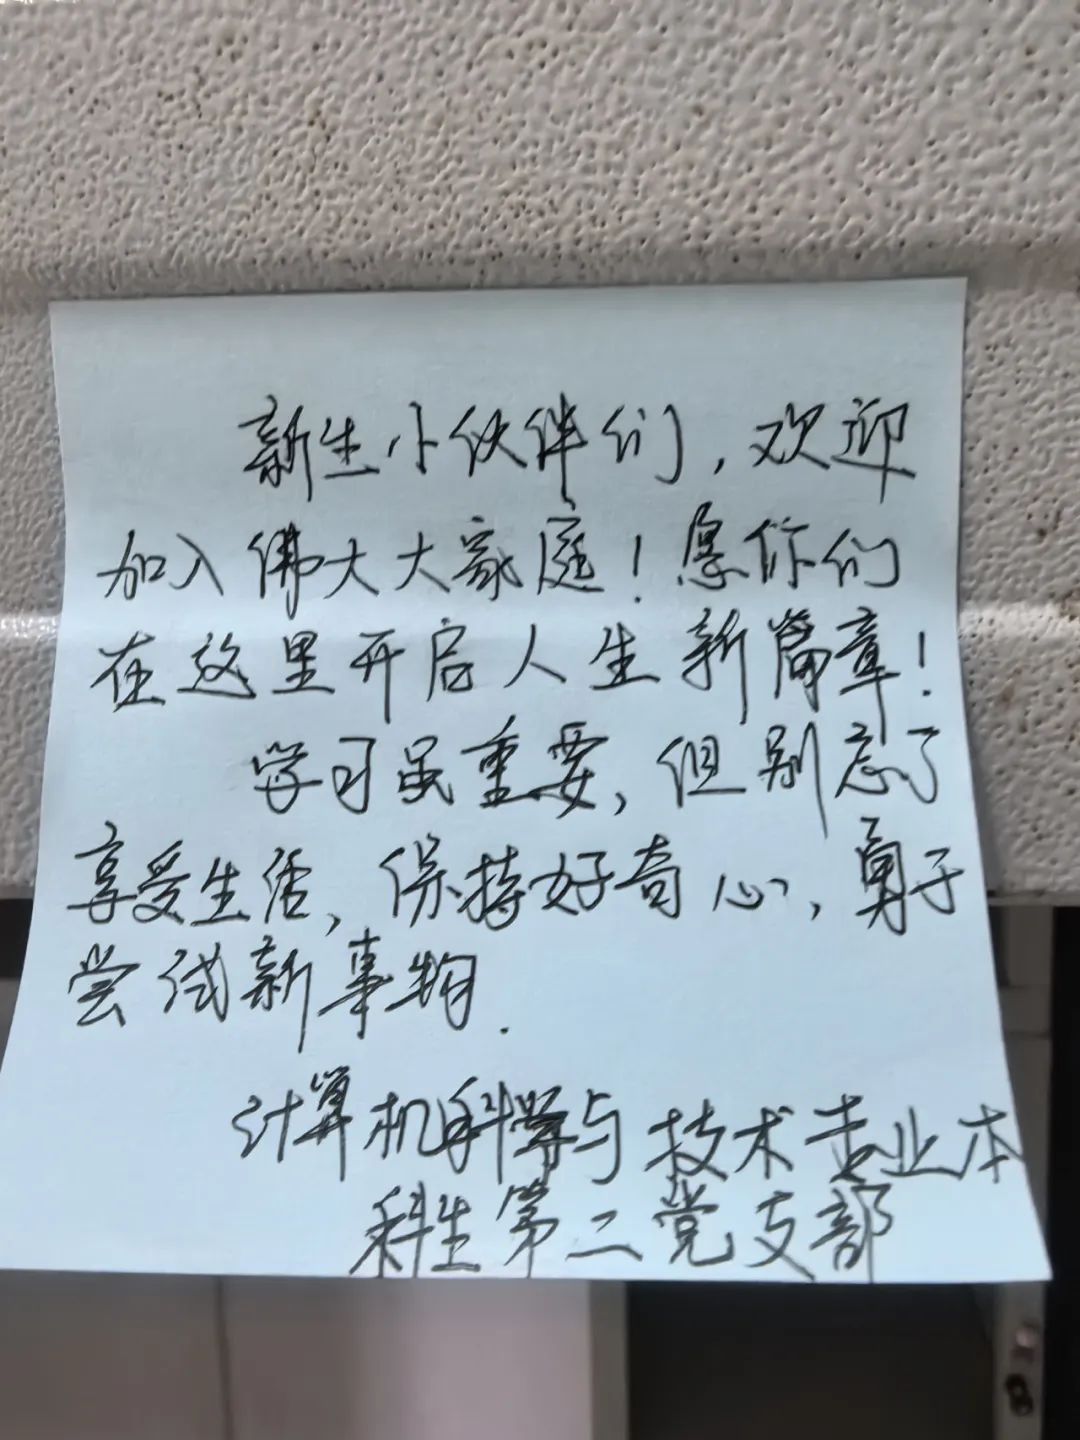 新生小伙伴们，欢迎
加入佛大大家庭！愿你们
在这里开启人生新篇章！
学习虽重要，但别忘了
享受生活，保持好奇心，勇于
尝试新事物.
计算机科学与技术专业本
科生第二党支部